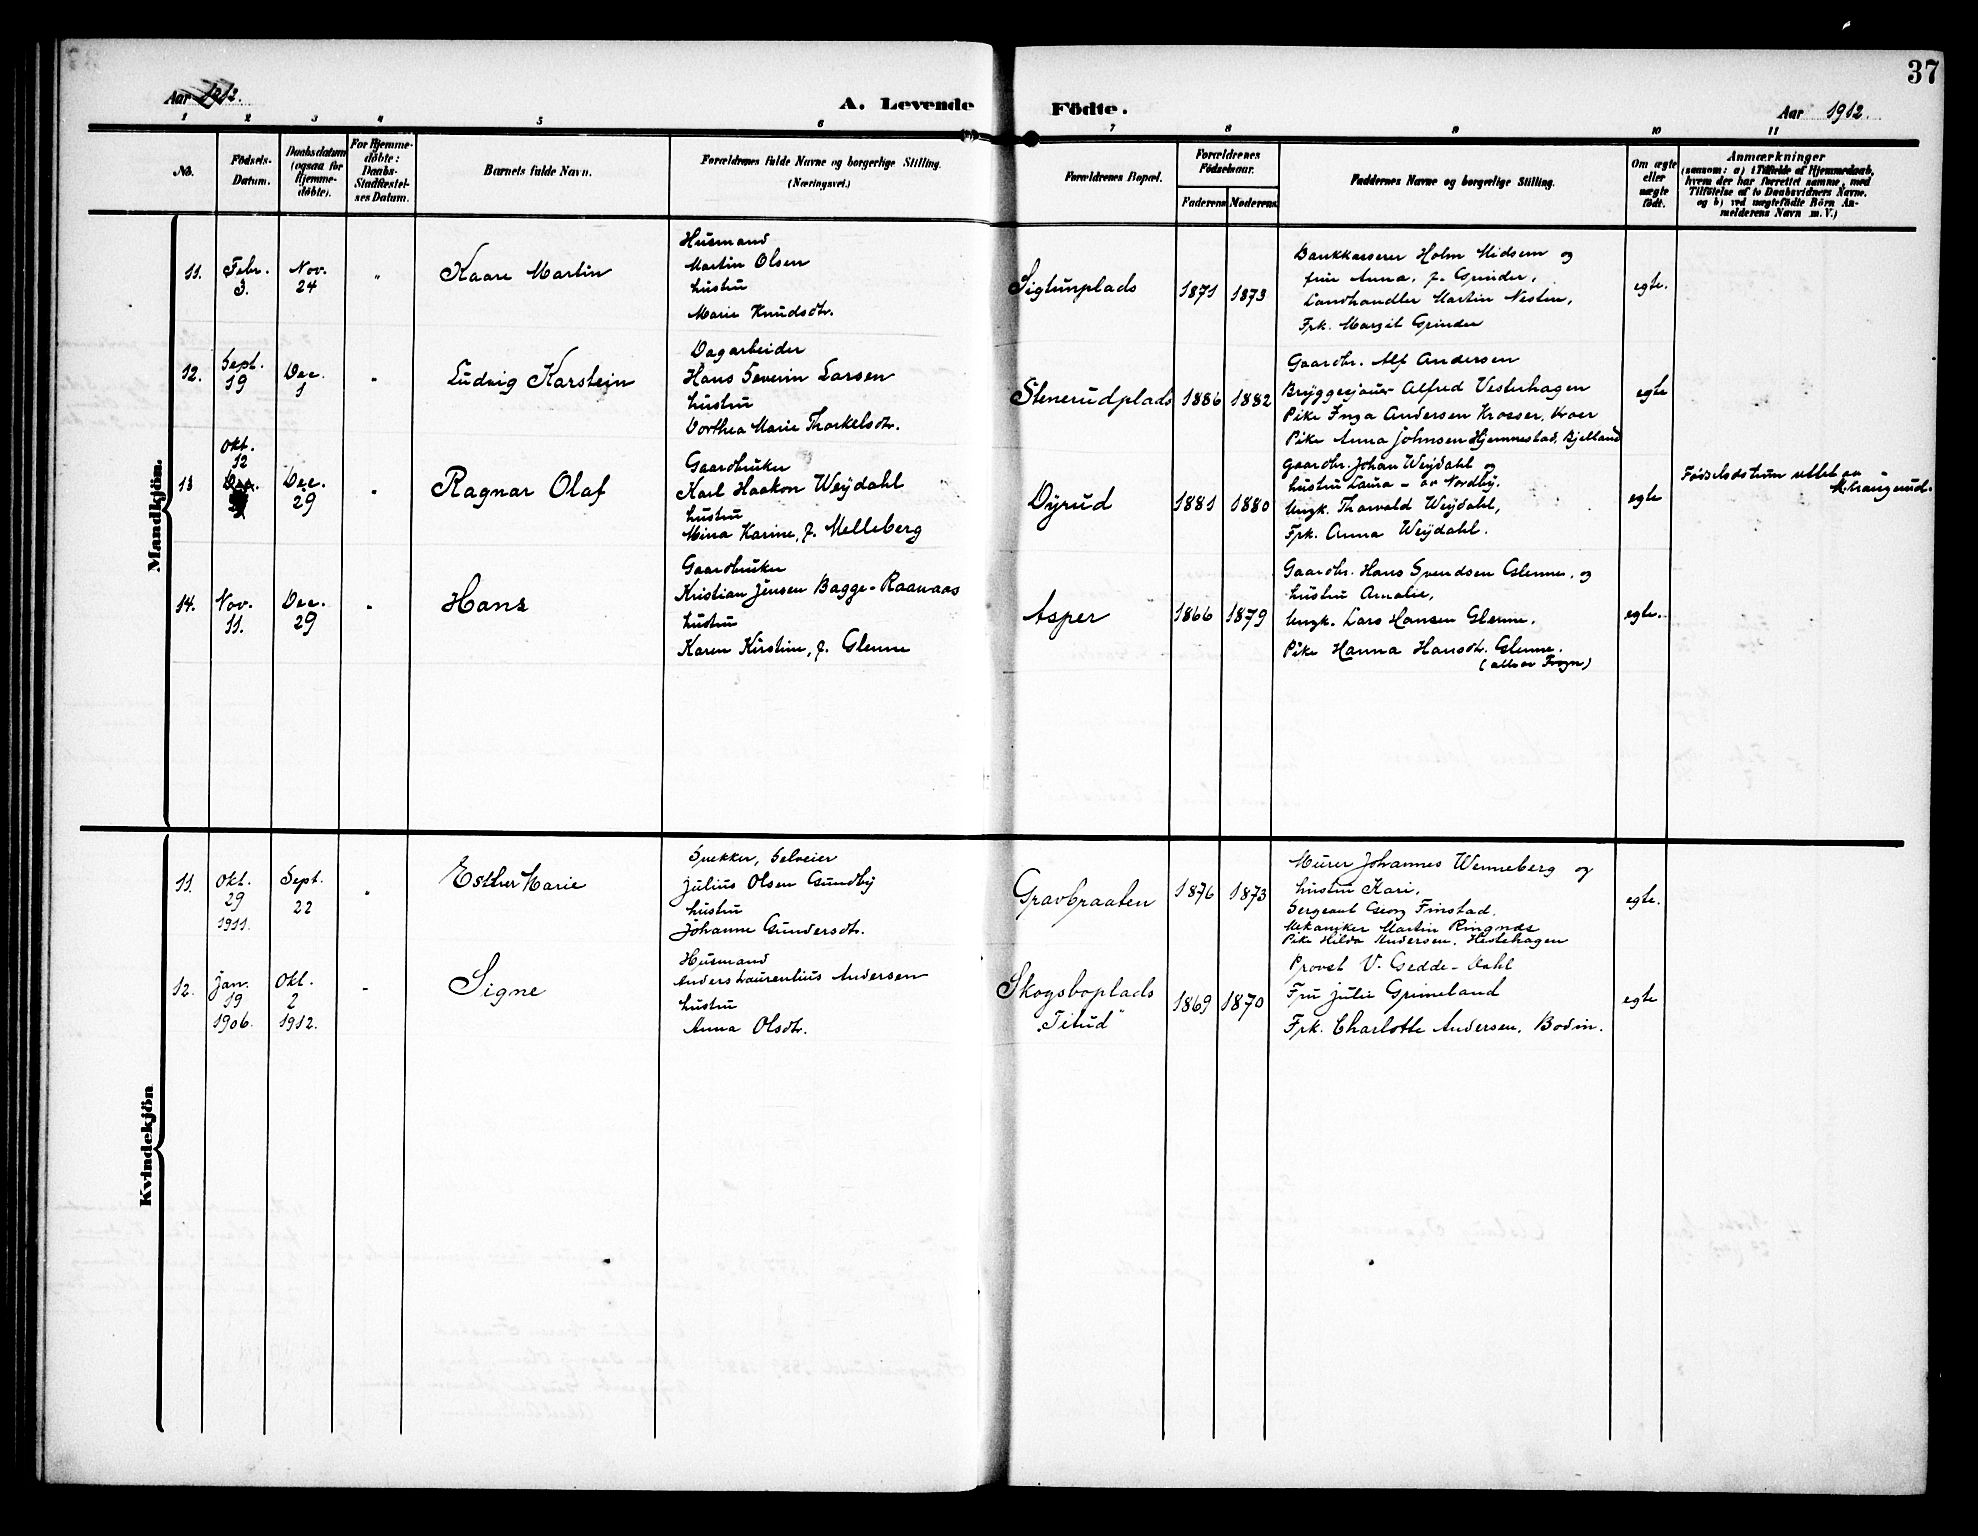 37
Aar 1912.
A. Levende Födte.
Aar 1912.
1 2 3 4 5 6 7 8 9 10 11
No.
Födsels-
Datum.
Daabsdatum
(ogsaa for
Hjemme-
döbte).
For Hjemme-
döbte:
Daabs-
Stadfæstel-
ses Datum.
Barnets fulde Navn.
Forældrenes fulde Navne og borgerlige Stilling.
(Næringsvei.)
Forældrenes Bopæl.
Forældrenes
Födselsaar.
Faderens
Moderens
Faddernes Navne og borgerlige Stilling.
Om ægte
eller
uægte
födt.
Anmærkninger
(saasom: a) i Tilfælde af Hjemmedaab,
hvem der har forrettet samme, med
Tilföielse af to Daabsvidners Navne.
og b) ved uægtefödte Börn An-
melderens Navn m. V.)
Mandkjön.
11.
Febr.
3.
Nov.
24
"
Kaare Martin
Husmand
Martin Olsen
hustru
Marie Knudsdtr.
Sigtunplads
1871
1873
Bankkasserer Holm Midsem og
frue Anna, f. Grinder,
Landhandler Martin Nesten,
Frk. Margit Grinder
egte.
12.
Sept.
19
Dec.
1
"
Ludvig Karstein
Dagarbeider
Hans Severin Larsen
hustru
Dorthea Marie Thorkelsdtr.
Stenerudplads
1886
1882
Gaardbr. Alf Andersen
Bryggesjauer Alfred Vesterhagen
Pike Inga Andersen Krosser, Kroer
Pike Anna Johnsen Hjemmestad, Bjelland
egte
13
Okt.
12
Dec.
29
"
Ragnar Olaf
Gaardbruker
Karl Haakon Weydahl
hustru
Mina Karine, f. Melleberg
Dyrud
1881
1880
Gaardbr. Johan Weydahl og
hustru Laura - av Nordby.
Ungk. Thorvald Weydahl,
Frk. Anna Weydahl.
egte
14.
Nov.
11.
Dec.
29
"
Hans
Gaardbruker
Kristian Jensen Bagge-Raanaas
hustru
Karen Kirstine, f. Glenne
Asper
1866
1879
Gaardbr. Hans Svendsen Glenne, og
hustru Amalie,
Ungk. Lars Hansen Glenne.
Pike Hanna Hansdtr. Glenne.
(alle av Frogn)
egte.
Kvindekjön
11.
Okt.
29
1911.
Sept.
22
"
Esther Marie
Snekker, Selveier
Julius Olsen Gundby
hustru
Johanne Gundersdtr.
Gravbraaten
1876
1873
Murer Johannes Wenneberg og
hustru Kari,
Sergeant Georg Finstad.
Mekaniker Martin Ringnes
Pike Hilda Andersen, Hestehagen
egte.
12.
Jan.
19
1906.
Okt.
2
1912.
"
Signe
Husmand
Anders Laurentius Andersen
hustru
Anna Olsdtr.
Skogsboplads
"Titud"
1869
1870
Provst V. Gedde-Dahl
Fru Julie Grimeland
Frk. Charlotte Andersen, Bodin.
egte